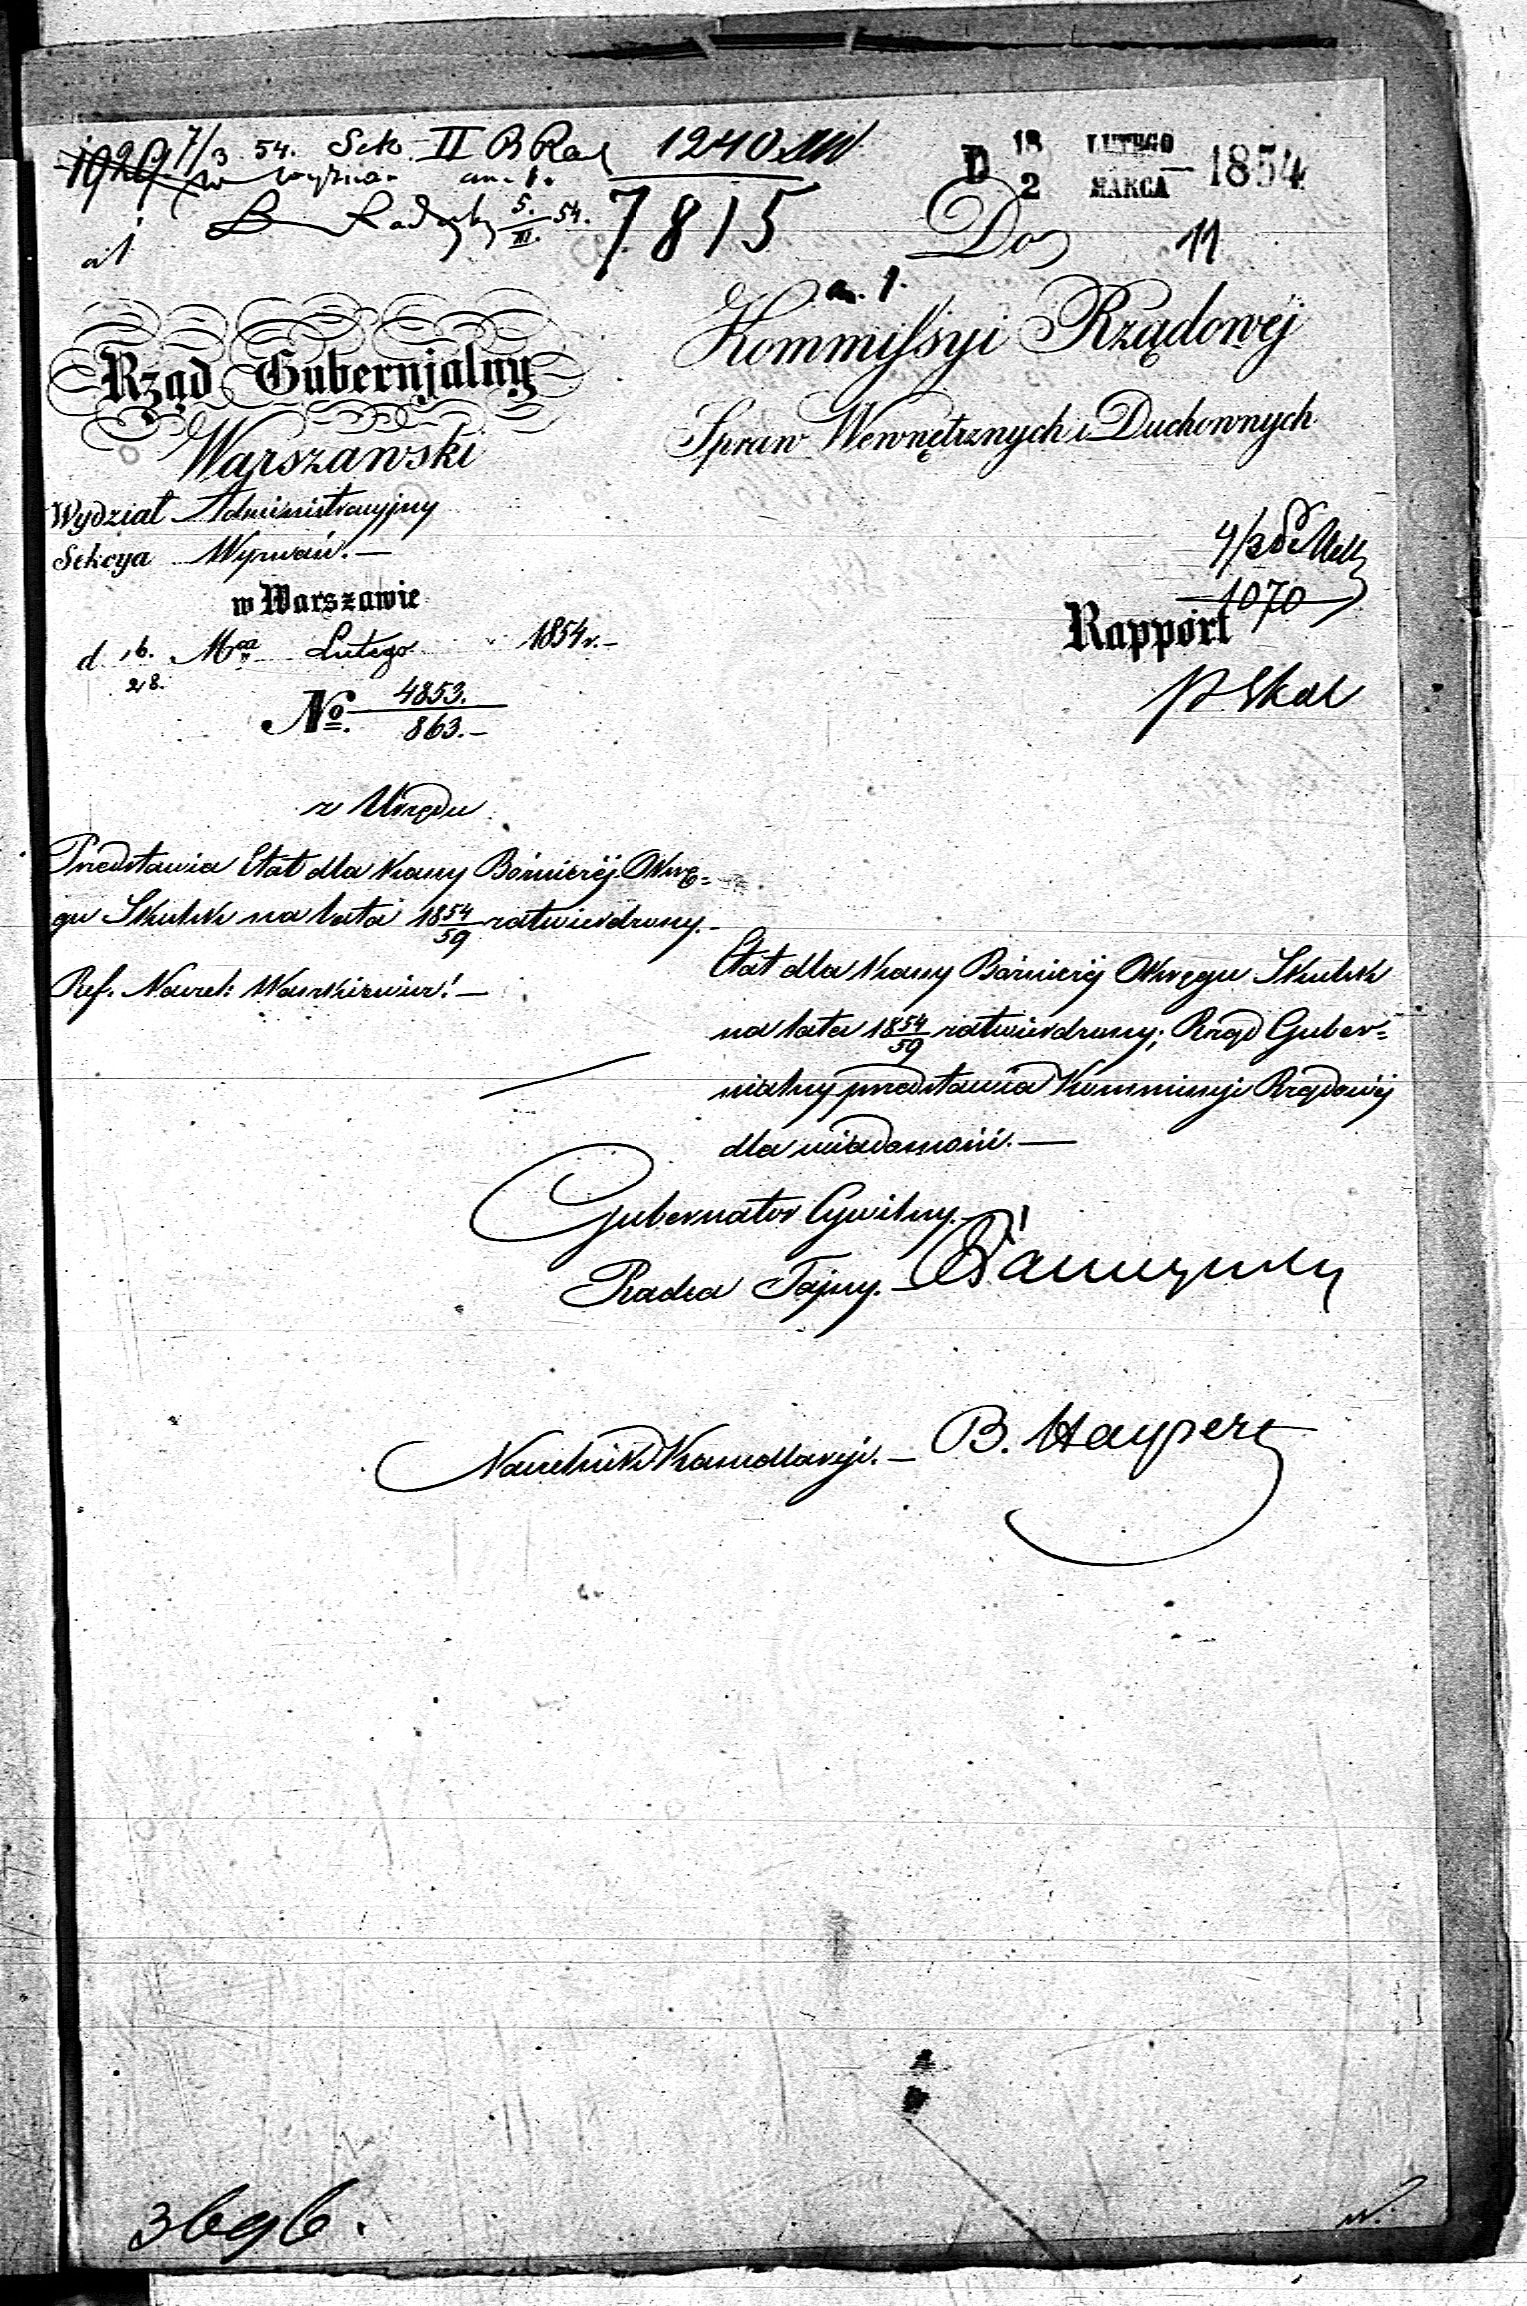 1929 7/3 54. Sek. II B Rad 1240
an. 1.
5/III. 54. 7815
D 18 LUTEGO 2 MARCA 1854
Do 11
an. 1.
Kommissyi Rządowej
Spraw Wewnętrznych i Duchownych
Rząd Gubernjalny
Warszawski
Wydział Administracyjny
Sekcya Wyznań. —
w Warszawie
d 16. 28. Mca Lutego 1854 r. —
No. 4853. 863. —
1070
Rapport
z Urzędu
Przedstawia Etat dla Kassy Bóżniczéj Okrę-
gu Skulsk na lata 1854/59 zatwierdzony. —
Ref. Naczel:
Etat dla Kassy Bóżniczéj Okręgu Skulsk
na lata 1854/59 zatwierdzony; Rząd Guber-
nialny przedstawia Kommissyi Rządowéj
dla wiadomości. —
Gubernator Cywilny.
Radca Tajny. —
Naczelnik Kancellaryi. —
3696.